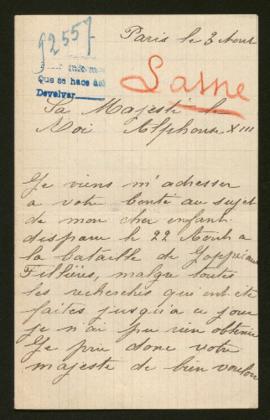 92557
Paris le 3 Aout
Que se hace así
Devolver
Sarne
Sa Majesté le
Roi Alphonse XIII
Je viens m'adresser
a votre bonté au sujet
de mon cher enfant
disparu le 22 Août a
la bataille de
Fillières, malgré toutes
les recherches qui ont été
faites jusqu'a ce jour
je n'ai pu rien obtenir
Je prie donc votre
majeste de bien vouloir